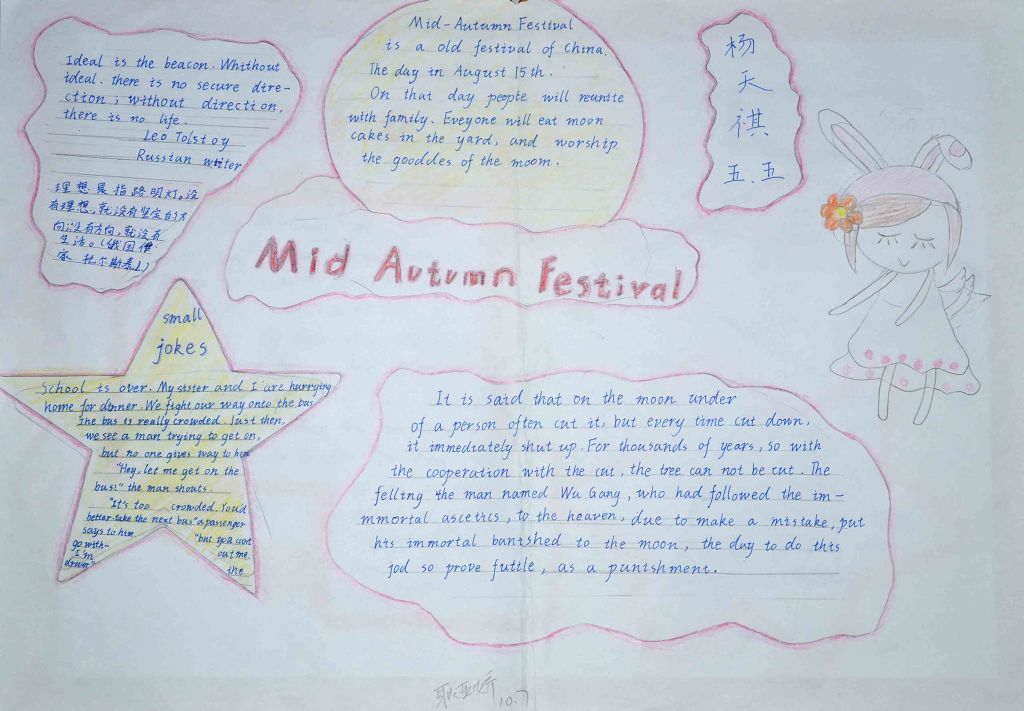 Ideal is the beacon. Whithout
ideal. there is no secure dire-
ction ; without direction,
there is no life.
Leo Tolstoy
Russian writer
理想是指路明灯。没
有理想,就没有坚定的方
向;没有方向,就没有
生活。(俄国作
家 托尔斯泰)
Mid-Autumn Festival
is a old festival of China.
The day in August 15th.
On that day people will reunite
with family. Eveyone will eat moon
cakes in the yard, and worship
the gooddes of the moom.
杨
天
祺
五.五
Mid Autumn Festival
small
jokes
School is over. My sister and I are hurrying
home for dinner. We fight our way onto the bus
The bus is really crowded. Just then,
we see a man trying to get on,
but no one gives way to him
"Hey, let me get on the
bus!" the man shouts.
"It's too crowded. You'd
better take the next bus" a passenger
says to him. "but you cant
go with- out me.
I'm the
driver"
It is said that on the moon under
of a person often cut it, but every time cut down,
it immediately shut up. For thousands of years, so with
the cooperation with the cut, the tree can not be cut. The
felling the man named Wu Gang, who had followed the im-
mmortal ascetics, to the heaven, due to make a mistake, put
his immortal banished to the moon, the day to do this
jod so prove futtle, as a punishment.
10.7